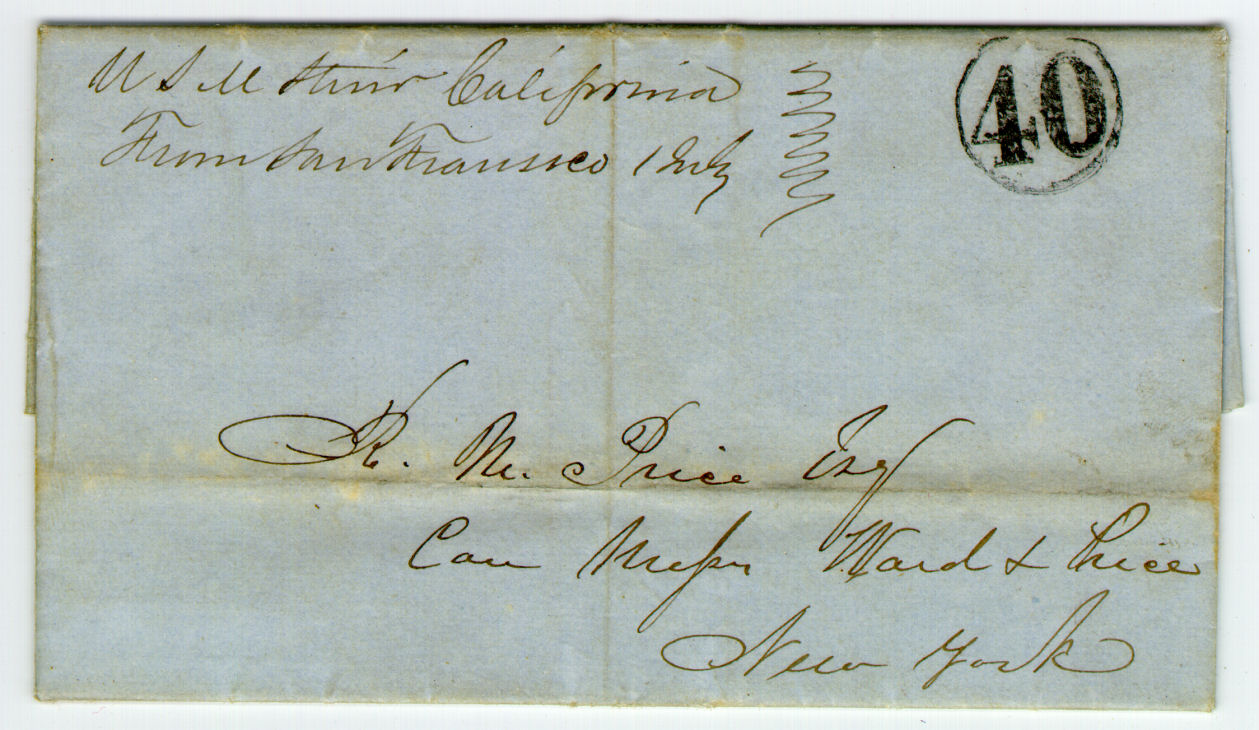 U S M Stmr California
From San Fransico 1 July
40
R. M. Price Esq
Care Messrs Ward & Price
New York